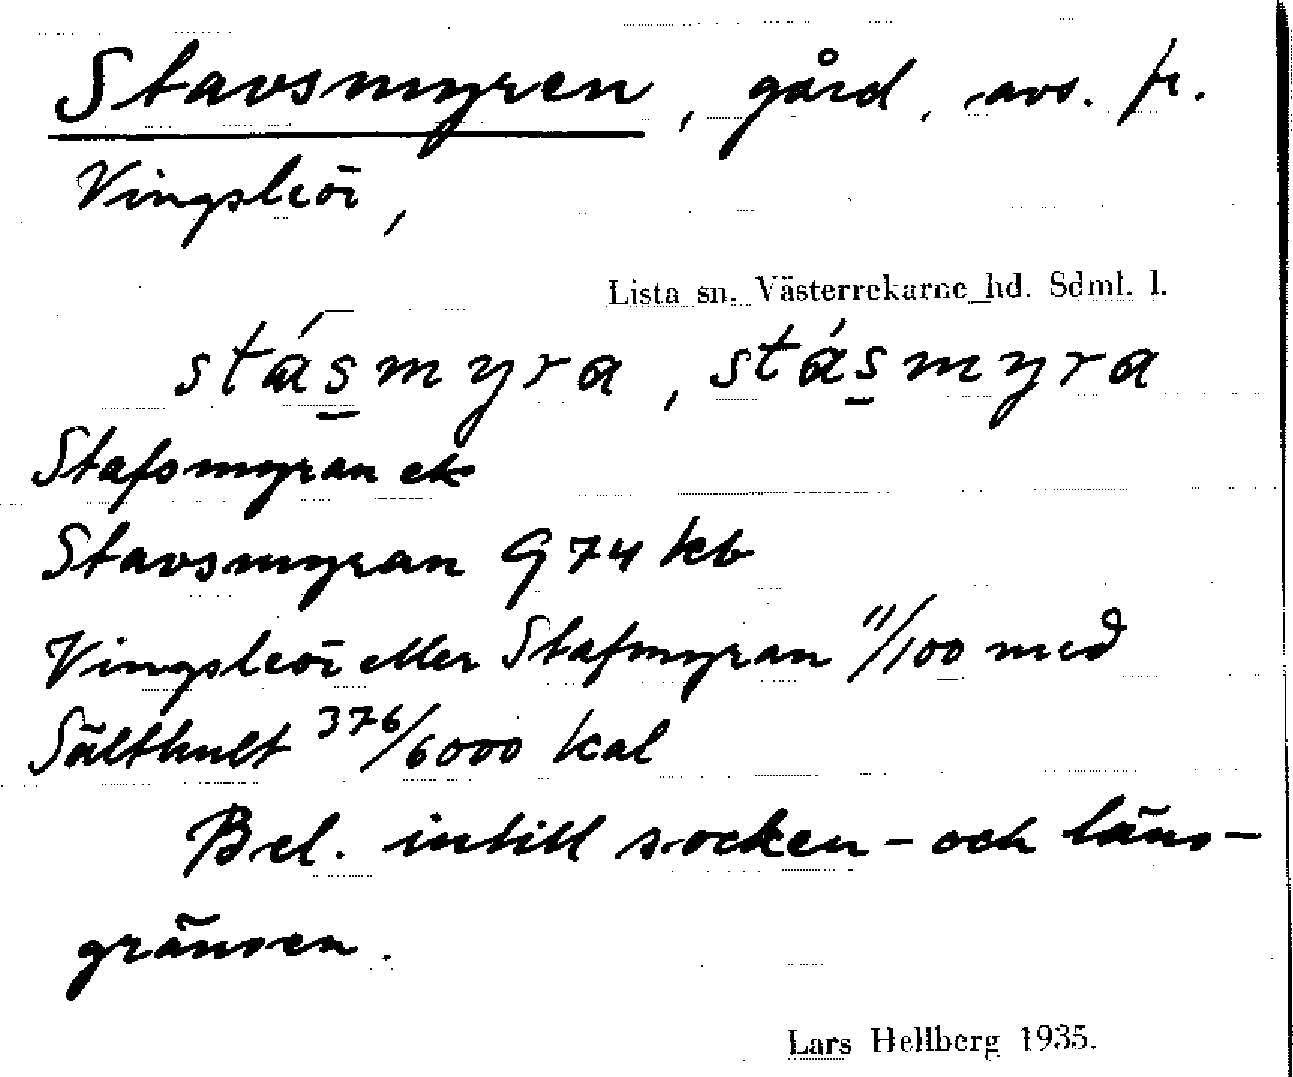 Stavsmyren, gård, avs. fr.
Vingsleör,
Lista sn. Västerrekarne hd. Sdml. l.
stásmyra, stásmyra
Stafsmyran ek
Stavsmyran G 74 kb
Vingsleör eller Stafmyran 11/100 med
Sälthult 376/6000 kal
Bel. intill socken- och läns-
gränsen.
Lars Hellberg 1935.